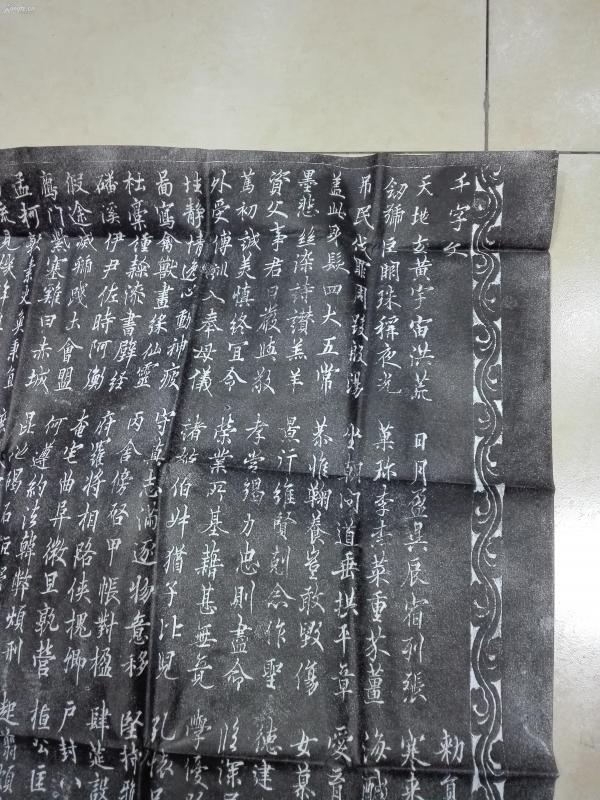 千字文 勅員
天地玄黄宇宙洪荒 日月盈昃辰宿列張 寒来
劒號巨闕珠稱夜光 菓珍李柰菜重芥薑 海醎
吊民伐罪周發殷湯 坐朝問道垂拱平章 愛育
盖此身髮四大五常 恭惟鞠養豈敢毀傷 女慕
墨悲絲染詩讚羔羊 景行維賢剋念作聖 德建
資父事君曰嚴與敬 孝當竭力忠則盡命 臨深
篤初誠美慎終宜令 榮業所基藉甚無竟 學優
外受傅訓入奉母儀 諸姑伯叔猶子比兒 孔懷
性静情逸心動神疲 守真志滿逐物意移 堅持雅
圖寫禽獸畫綵仙靈 丙舍傍啓甲帳對楹 肆筵設
杜稾鍾隸漆書壁經 府羅將相路俠槐卿 户封八
磻溪伊尹佐時阿衡 奄宅曲阜微旦孰營 桓公匡
假途滅虢踐土會盟 何遵約法韓弊煩刑 起翦頗
鴈門紫塞雞田赤城 昆池碣石鉅
孟軻敦素史魚秉直